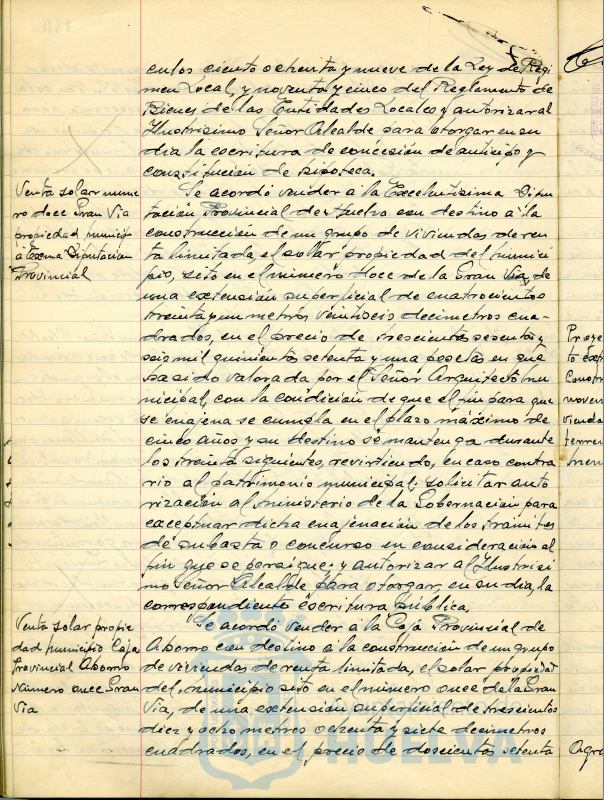 culos ciento ochenta y nueve de la Ley de Régi
men Local, y noventa y cinco del Reglamento de
Bienes de las Entidades Locales y autorizar al
Ilustrisimo Señor Alcalde para otorgar en su
dia la escritura de concesión de anticipo y
constitución de hipoteca.
Venta solar nume
ro doce Gran Via
propiedad municip
á Excma Diputacion
Provincial
Se acordó vender á la Excelentisima Dipu
tación Provincial de Huelva con destino á la
construcción de un grupo de viviendas de ren
ta limitada, el solar propiedad del munici
pio, sito en el número doce de la Gran Via, de
una extensión superficial de cuatrocientos
treinta y un metros veintiseis decimetros cua-
drados, en el precio de trescientas sesenta y
seis mil quinientas setenta y una pesetas en que
ha sido valorada por el Señor Arquitecto mu
nicipal, con la condición de que el fin para que
se enajena se cumpla en el plazo máximo de
cinco años y su destino se mantenga durante
los treinta siguientes, revirtiendo, en caso contra
rio al patrimonio municipal; solicitar auto
rización al Ministerio de la Gobernación para
exceptuar dicha enajenación de los tramites
de subasta o concurso en consideración al
fin que se persigue; y autorizar al Ilustrisi
mo Señor Alcalde para otorgar, en su dia, la
correspondiente escritura pública.
Venta solar propie
dad municipio Caja
Provincial Ahorro
Número once Gran
Via
Se acordó vender á la Caja Provincial de
Ahorro con destino á la construcción de un grupo
de viviendas de renta limitada, el solar propiedad
del municipio sito en el número once de la Gran
Via, de una extensión superficial de trescientos
diez y ocho metros ochenta y siete decimetros
cuadrados, en el precio de doscientas setenta
Proye
to exp
Constr
noven
vienda
HUELVA